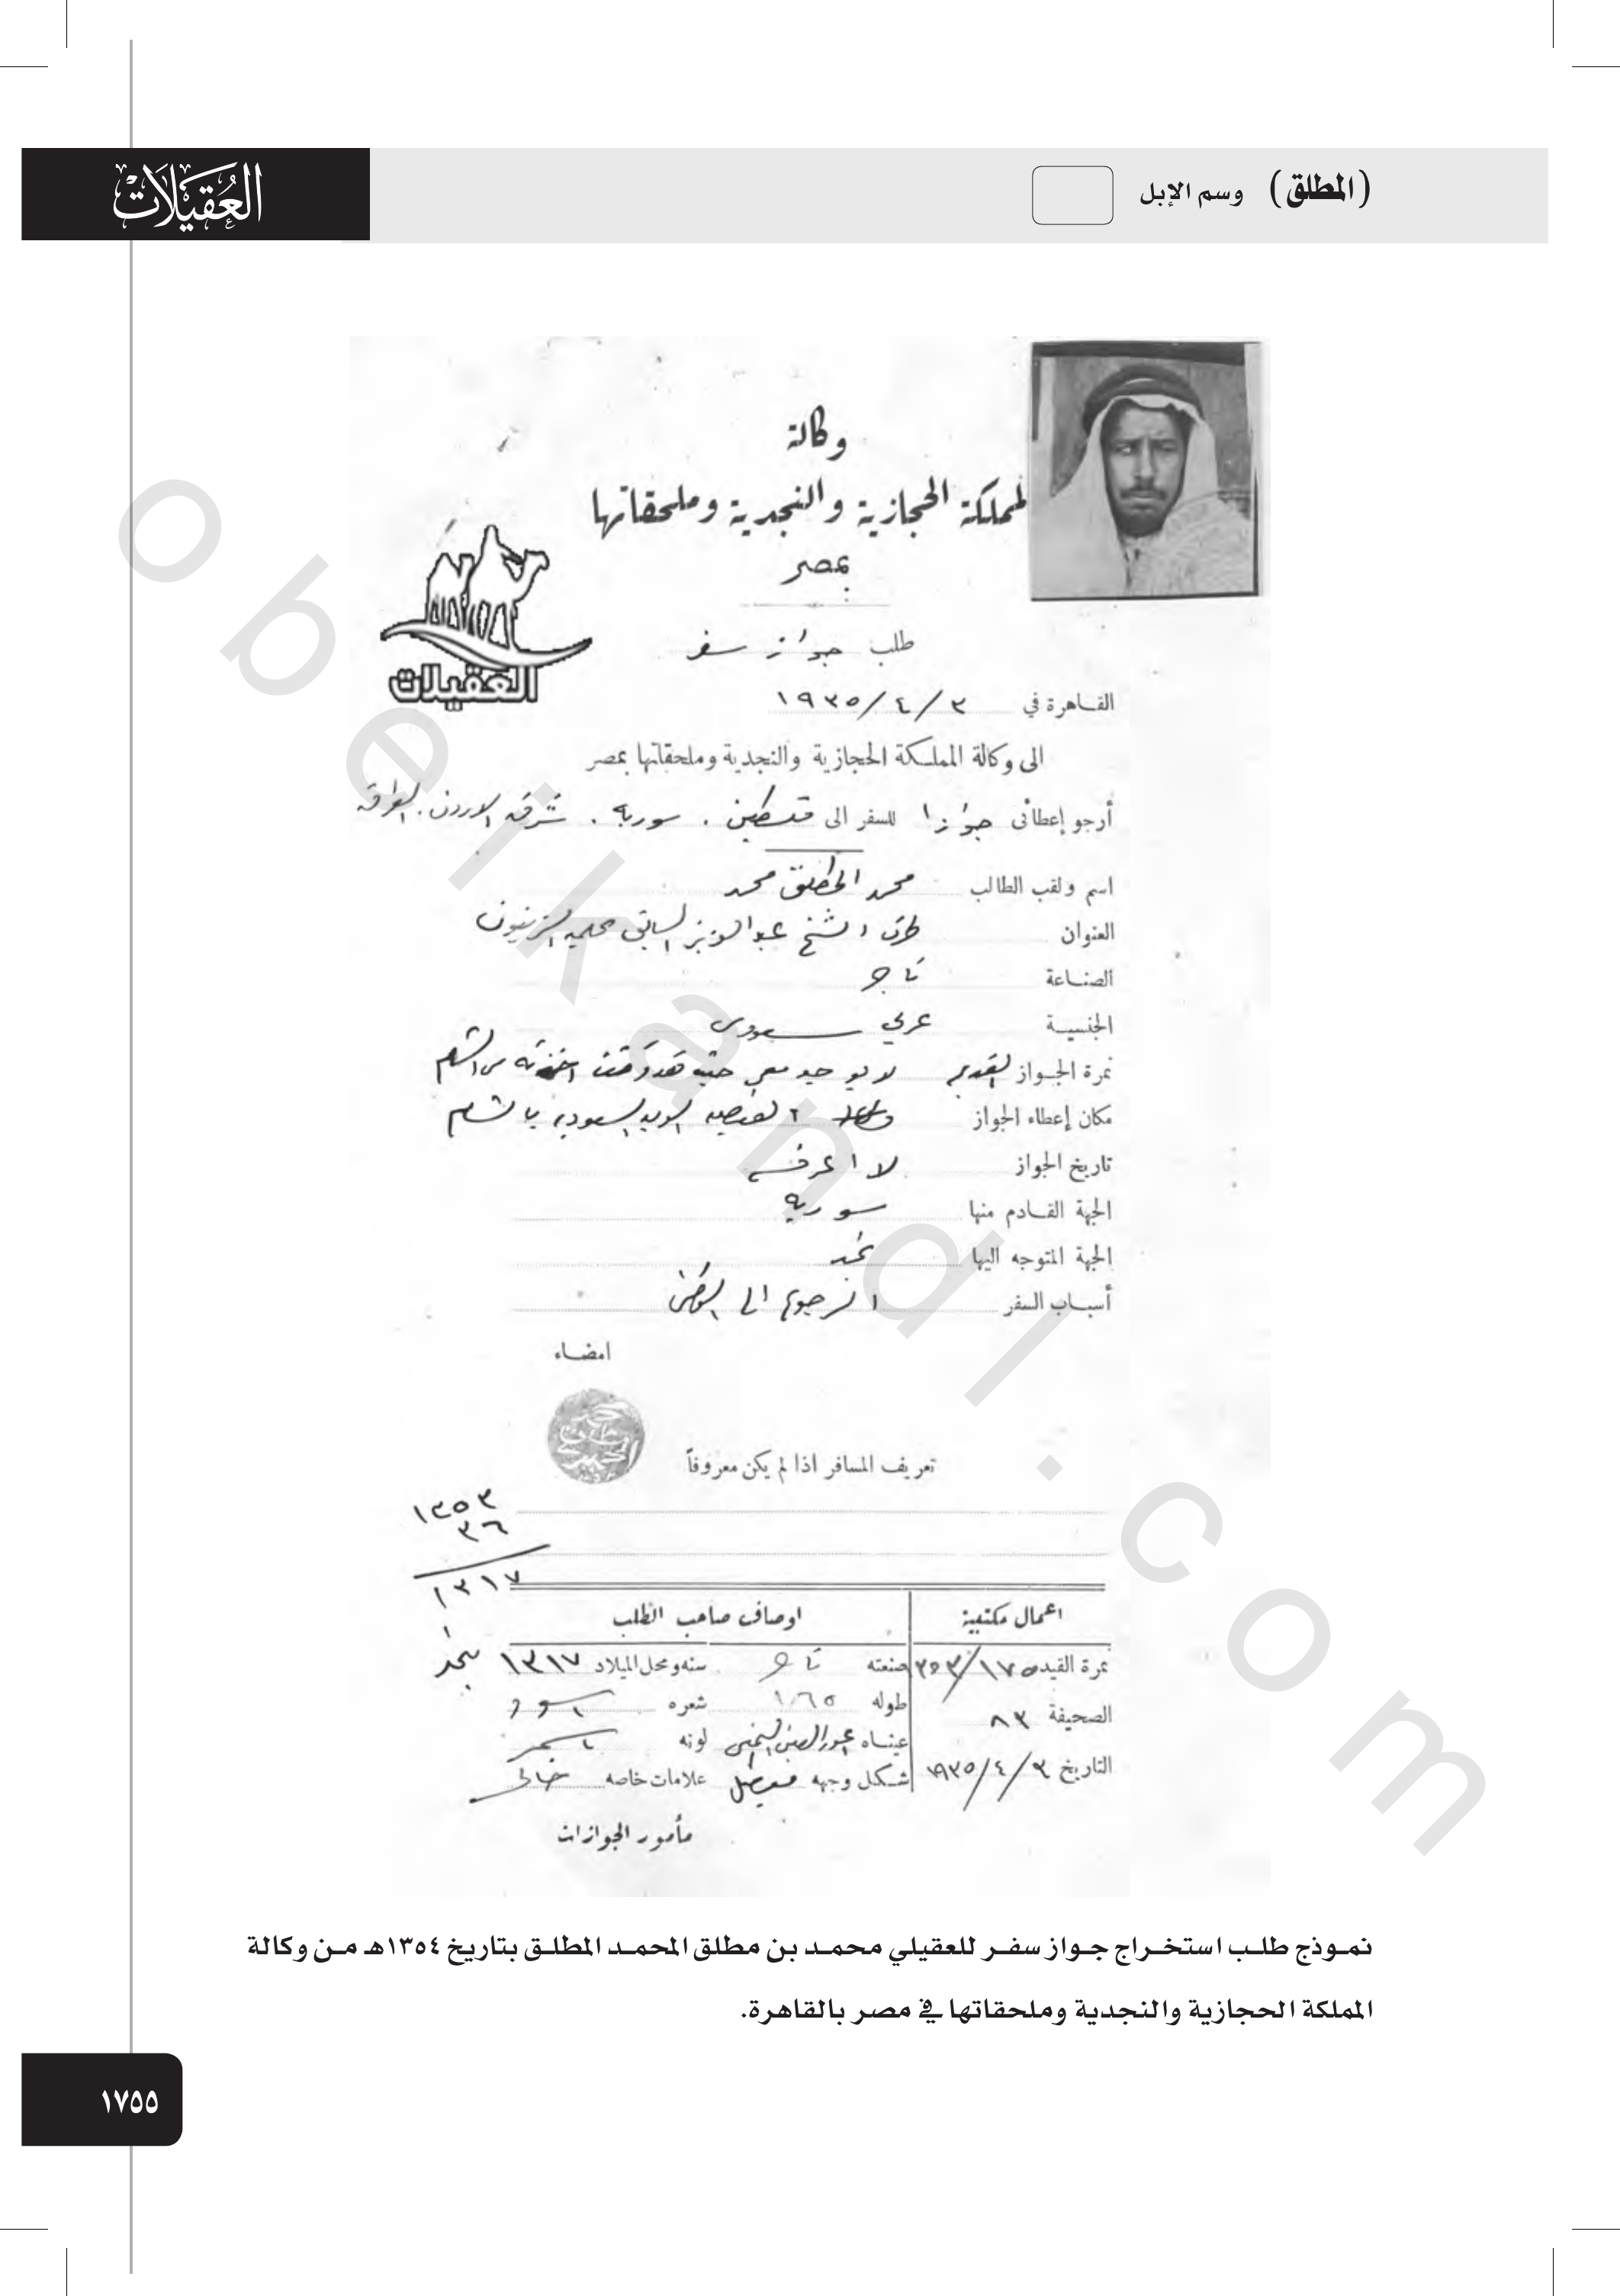 (المطلق) وسم الإبل
العقيلات
وكالة
لمملكة الحجازية والنجدية وملحقاتها
بمصر
العقيلات
طلب جواز سفر
القاهرة في ٣ / ٤ / ١٩٣٥
الى وكالة المملكة الحجازية والنجدية وملحقاتها بمصر
أرجو إعطائى جوازا للسفر الى فلسطين . سورية . شرق الاردن . العراق
اسم ولقب الطالب محمد المطلق محمد
العنوان طرف الشيخ عبد العزيز
الصناعة تاجر
الجنسية عربي سعودى
نمرة الجواز القديم لا يوجد معي من الشام
مكان إعطاء الجواز السعوديه بالشام
تاريخ الجواز لا اعرفه
الجهة القادم منها سورية
الجهة المتوجه اليها نجد
أسباب السفر الرجوع الى الوطن
امضاء
تعريف المسافر اذا لم يكن معروفاً
١٣٥٣
٣٦
١٣١٧
اعمال مكتبية
اوصاف صاحب الطلب
نمرة القيد ١٧٥/٣٥٣ صنعته تاجر سنه ومحل الميلاد ١٣١٧ بنجد
الصحيفة ٨٣ طوله ١،٦٥ شعره اسود
عيناه لونه اسمر
التاريخ ٣ / ٤ / ١٩٣٥ شكل وجهه علامات خاصه خالى
مأمور الجوازات
نموذج طلب استخراج جواز سفر للعقيلي محمد بن مطلق المحمد المطلق بتاريخ ١٣٥٤هـ من وكالة
المملكة الحجازية والنجدية وملحقاتها في مصر بالقاهرة.
١٧٥٥
obeikandl.com